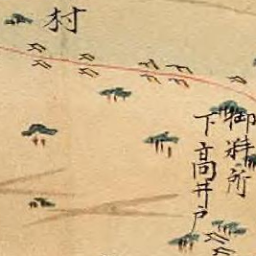 村
御料所
下高井戸